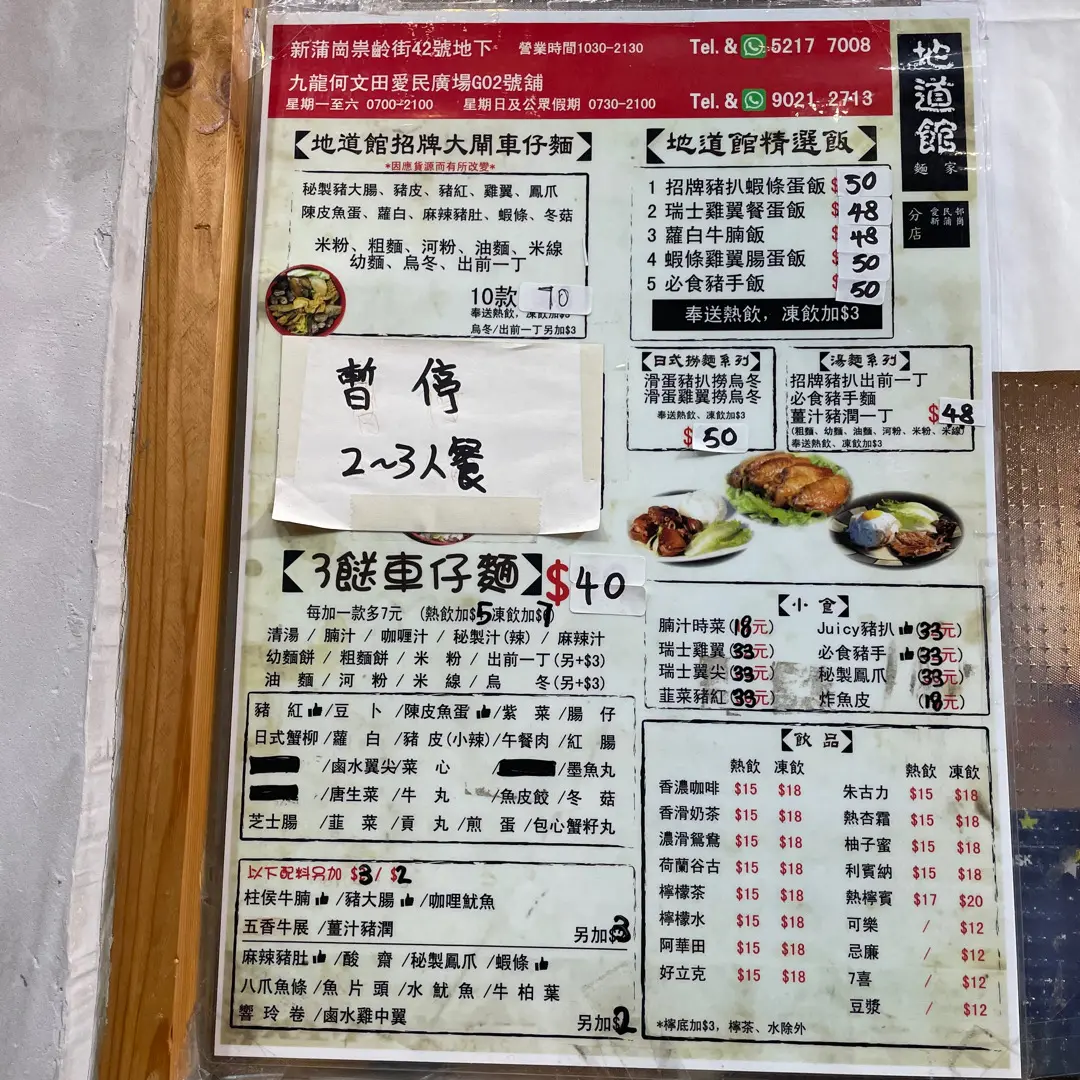 新蒲崗崇齡街42號地下 營業時間1030-2130 Tel. & 5217 7008
九龍何文田愛民廣場G02號舖
星期一至六 0700-2100 星期日及公眾假期 0730-2100 Tel. & 9021 2713
地道館
麵家
分店
愛民邨
新蒲崗
【地道館招牌大閘車仔麵】
*因應貨源而有所改變*
秘製豬大腸、豬皮、豬紅、雞翼、鳳爪
陳皮魚蛋、蘿白、麻辣豬肚、蝦條、冬菇
米粉、粗麵、河粉、油麵、米線
幼麵、烏冬、出前一丁
10款 70
奉送熱飲，凍飲加$3
烏冬/出前一丁另加$3
暫停
2~3人餐
【地道館精選飯】
1 招牌豬扒蝦條蛋飯 $50
2 瑞士雞翼餐蛋飯 $48
3 蘿白牛腩飯 $48
4 蝦條雞翼腸蛋飯 $50
5 必食豬手飯 $50
奉送熱飲，凍飲加$3
【日式撈麵系列】
滑蛋豬扒撈烏冬
滑蛋雞翼撈烏冬
奉送熱飲、凍飲加$3
$50
【湯麵系列】
招牌豬扒出前一丁
必食豬手麵
薑汁豬潤一丁 $48
(粗麵、幼麵、油麵、河粉、米粉、米線)
奉送熱飲、凍飲加$3
【3餸車仔麵】$40
每加一款多7元 (熱飲加$5凍飲加$7
清湯 / 腩汁 / 咖喱汁 / 秘製汁(辣) / 麻辣汁
幼麵餅 / 粗麵餅 / 米 粉 / 出前一丁(另+$3)
油 麵 / 河 粉 / 米 線 / 烏 冬(另+$3)
豬 紅/豆 卜/陳皮魚蛋/紫 菜/腸 仔
日式蟹柳/蘿 白/豬 皮(小辣)/午餐肉/紅 腸
/鹵水翼尖/菜 心 /墨魚丸
/唐生菜/牛 丸 /魚皮餃/冬 菇
芝士腸 /韮 菜/貢 丸/煎 蛋/包心蟹籽丸
以下配料另加 $3/ $2
柱侯牛腩 /豬大腸 /咖哩魷魚
五香牛展 /薑汁豬潤 另加$3
麻辣豬肚 /酸 齋 /秘製鳳爪 /蝦條
八爪魚條 /魚 片 頭 /水 魷 魚 /牛 柏 葉
響 玲 卷 /鹵水雞中翼 另加$2
【小食】
腩汁時菜(18元) Juicy豬扒(33元)
瑞士雞翼(33元) 必食豬手(33元)
瑞士翼尖(33元) 秘製鳳爪(33元)
韮菜豬紅(33元) 炸魚皮(18元)
【飲品】
熱飲 凍飲 熱飲 凍飲
香濃咖啡 $15 $18 朱古力 $15 $18
香滑奶茶 $15 $18 熱杏霜 $15 $18
濃滑鴛鴦 $15 $18 柚子蜜 $15 $18
荷蘭谷古 $15 $18 利賓納 $15 $18
檸檬茶 $15 $18 熱檸賓 $17 $20
檸檬水 $15 $18 可樂 / $12
阿華田 $15 $18 忌廉 / $12
好立克 $15 $18 7喜 / $12
豆漿 / $12
*檸底加$3，檸茶、水除外